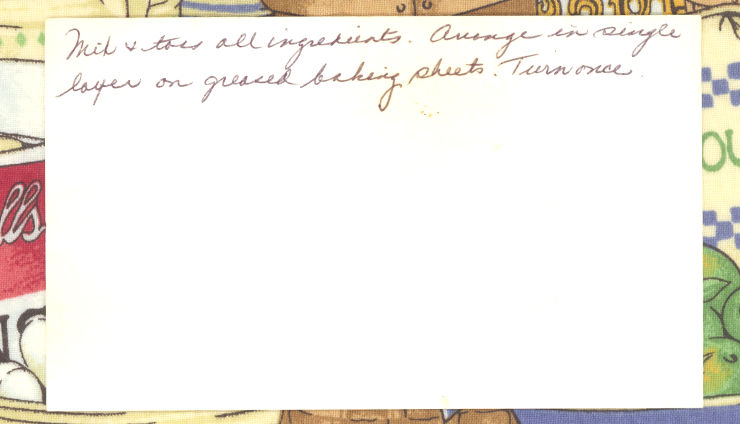 Mix & toss all ingredients. Arrange in single
layer on greased baking sheets. Turn once.
lls
OU